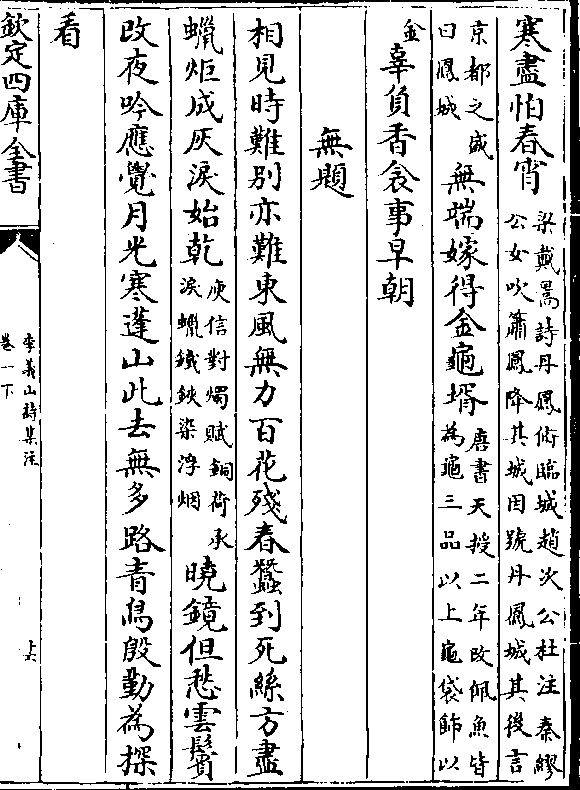 寒盡怕春宵
梁戴暠詩丹鳳俯臨城趙次公杜注秦繆
公女吹簫鳳降其城因號丹鳳城其後言
京都之盛
曰鳳城
無端嫁得金龜壻
唐書天授二年改佩魚皆
為龜三品以上龜袋飾以
金
辜負香衾事早朝
無題
相見時難別亦難東風無力百花殘春蠶到死絲方盡
蠟炬成灰淚始乾
庾信對燭賦銅荷承
淚蠟鐵鋏染浮烟
曉鏡但愁雲鬢
改夜吟應覺月光寒蓬山此去無多路青鳥殷勤為探
看
欽定四庫全書
李義山詩集注
卷一下